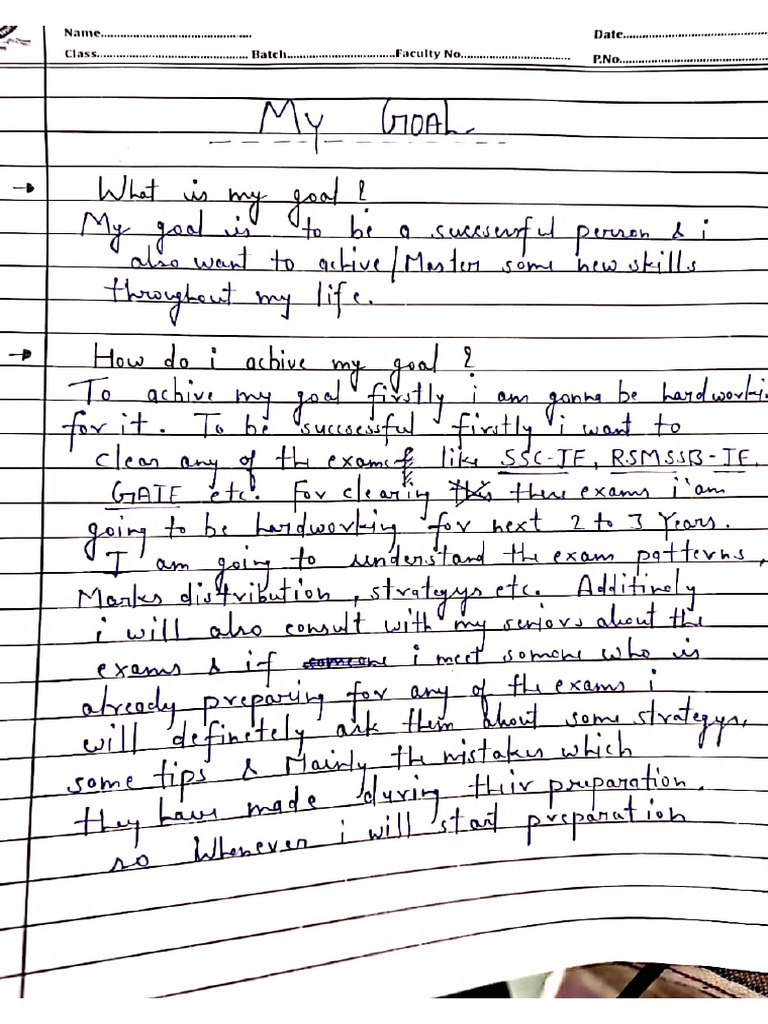 Name............................................. Date...........................................
Class............................................. Batch................................Faculty No................................ P.No............................................
My GOAL.
→ What is my goal?
My goal is to be a successful person & i
also want to achive/Master some new skills
throughout my life.
→ How do i achive my goal?
To achive my goal firstly i am gonna be hardworking
for it. To be successful firstly i want to
clear any of the exams like SSC-JE, RSMSSB-JE,
GATE etc. For clearing these exams i'am
going to be hardworking for next 2 to 3 Years.
I am going to understand the exam patterns,
Marks distribution, strategys etc. Additinely
i will also consult with my seniors about the
exams & if i meet somone who is
already preparing for any of the exams i
will definetely ask them about some strategys,
some tips & Mainly the mistakes which
they have made during thiir preparation.
so Whenever i will start preparation